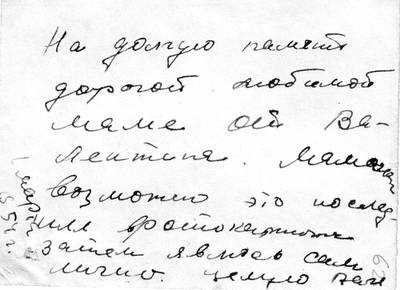 На долгую память
дорогой любимой
маме от Ва-
лентина. Мамочка
возможно это послед-
няя фотокарточка
затем явлюсь сам
лично. Целую Вас
1 марта
54 г.
62